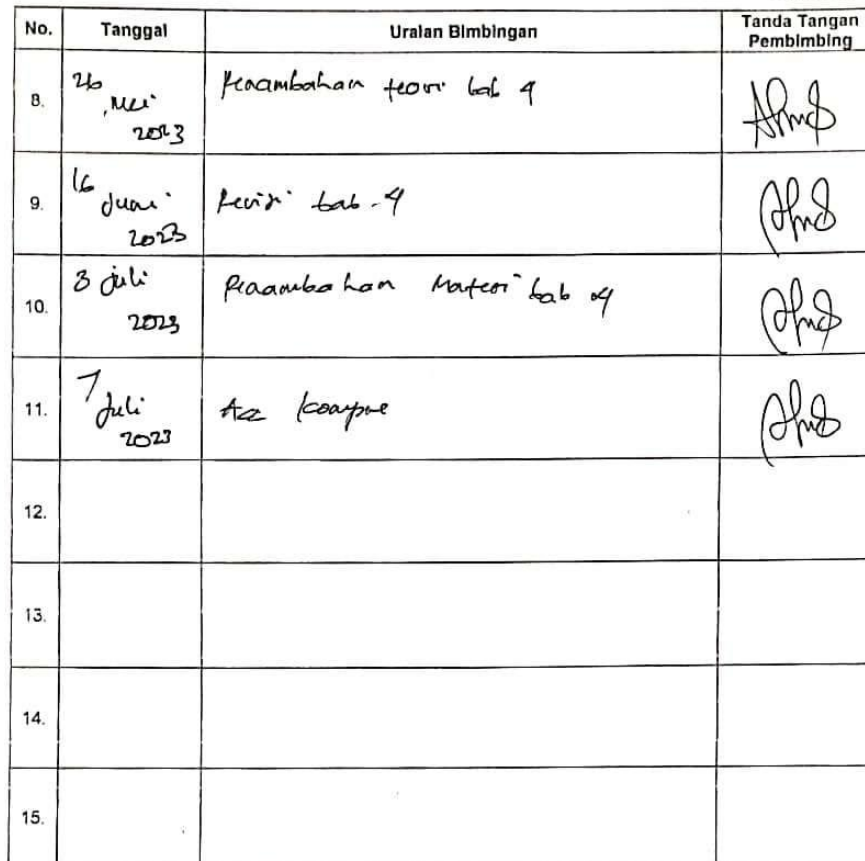 No. Tanggal Uraian Bimbingan Tanda Tangan Pembimbing
8. 26 Mei 2023 Penambahan teori bab 4
9. 16 Juni 2023 Revisi bab-4
10. 3 Juli 2023 Penambahan Materi bab 4
11. 7 Juli 2023 Acc
12.
13.
14.
15.